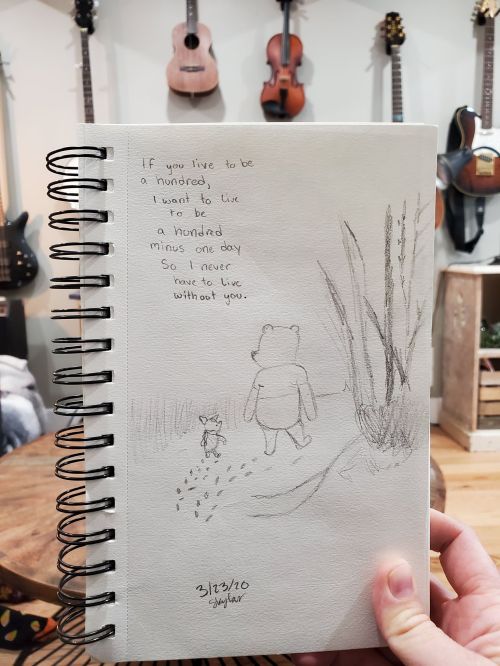 If you live to be
a hundred,
I want to live
to be
a hundred
minus one day
So I never
have to live
without you.
3/23/20